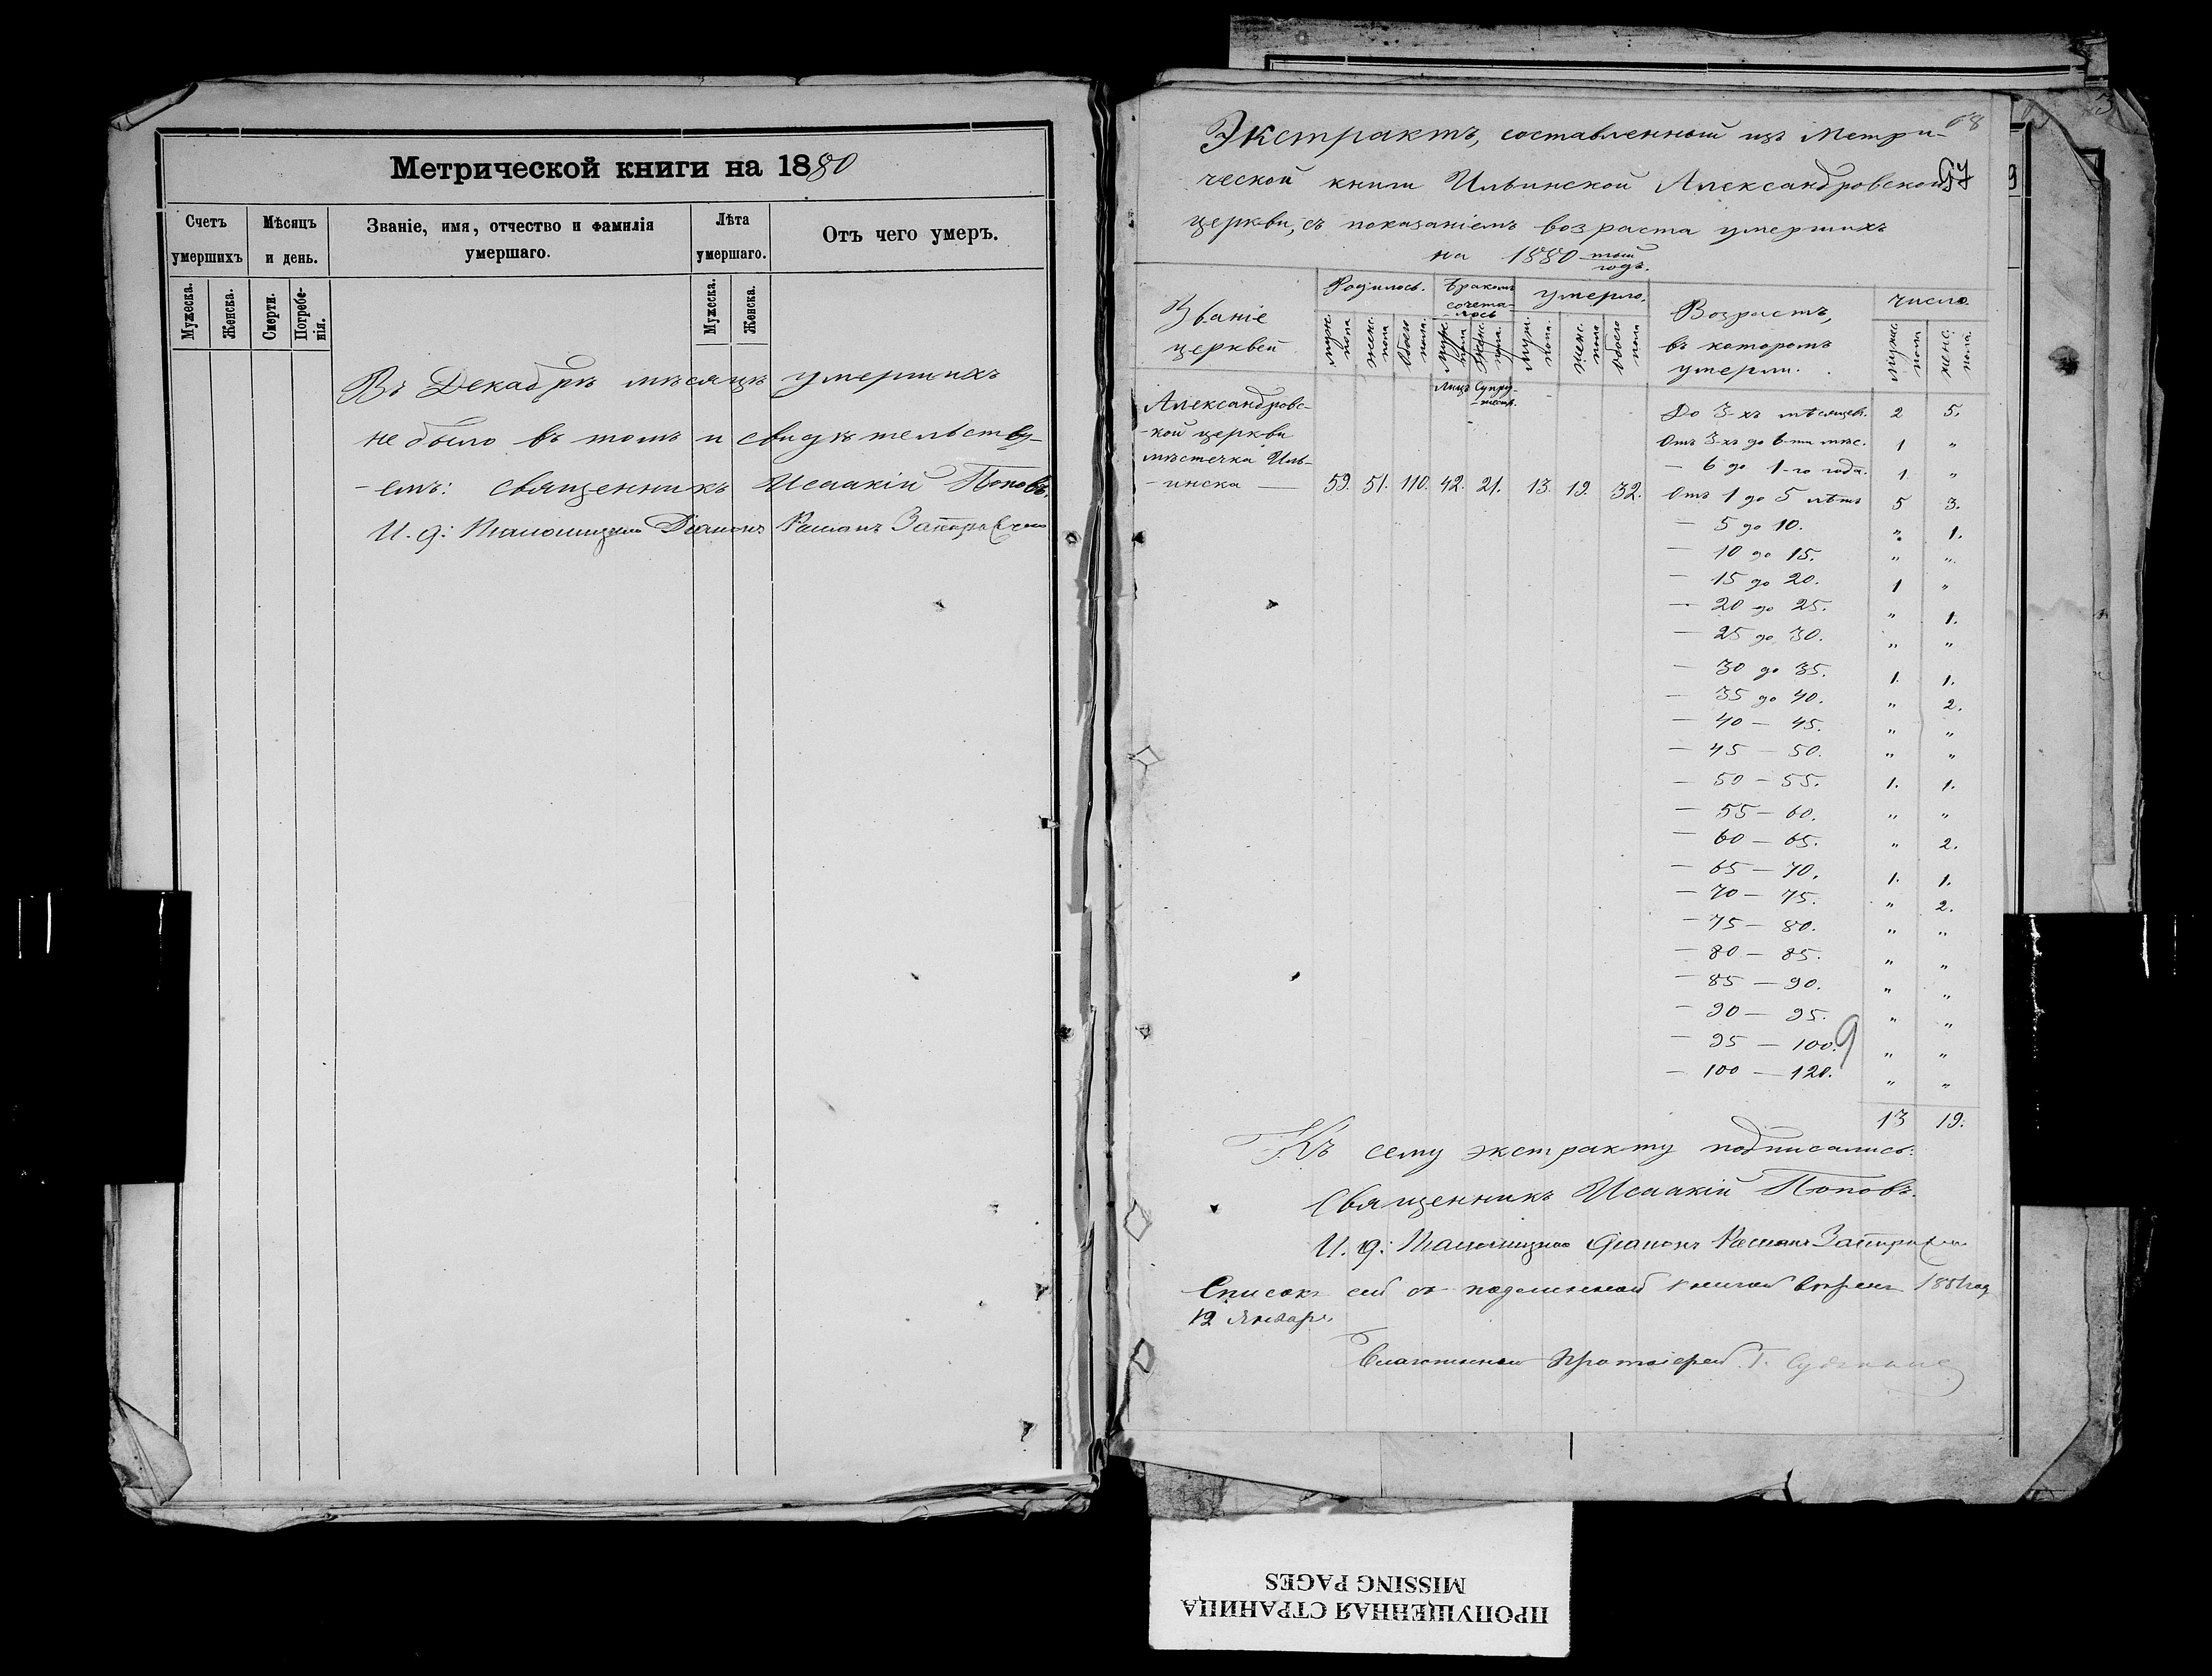 Метрической книги на 1880
Счетъ умершихъ
Мѣсяцъ и день.
Званіе, имя, отчество и фамилія умершаго.
Лѣта умершаго.
Отъ чего умеръ.
Мужеска.
Женска.
Смерти.
Погребенія.
Мужеска.
Женска.
Въ Декабрѣ мѣсяцѣ умершихъ
не было въ томъ и свидѣтельству-
-емъ: священникъ Исаакій Поповъ.
И. д: Псаломщика Діаконъ Романъ
68
Экстрактъ, составленный изъ Метри-
ческой книги Ильинской Александровской
57
церкви, съ показаніемъ возраста умершихъ
на 1880 тый годъ.
Званіе церквей
Родилось.
бракомъ сочета-лось
умерло.
Возрастъ, въ которомъ умерли.
число.
муж. пола
женс. пола
обоего пола.
муж. пола
женс. пола.
муж. пола.
женс. пола
обоего пола
мужс. пола
женс. пола.
Лицъ Супру-жест.
Александровс-
-кой церкви
мѣстечка Иль-
-инска — 59. 51. 110. 42. 21. 13. 19. 32.
До 3-хъ мѣсяцевъ. 2 5.
Отъ 3-хъ до 6-ти мѣс. 1 "
— 6 до 1-го года. 1. "
Отъ 1 до 5 лѣтъ 5 3.
— 5 до 10. " 1.
— 10 до 15. " "
— 15 до 20. 1 "
— 20 до 25. " 1.
— 25 до 30. " "
— 30 до 35. 1. 1.
— 35 до 40. " 2.
— 40 — 45. " "
— 45 — 50. " "
— 50 — 55. 1. 1.
— 55 — 60. " "
— 60 — 65. " 2.
— 65 — 70. 1. 1.
— 70 — 75. " 2.
— 75 — 80. " "
— 80 — 85. " "
— 85 — 90. " "
— 90 — 95. " "
— 95 — 100. " "
— 100 — 120. " "
13 19.
Къ сему экстракту подписались:
Священникъ Исаакій Поповъ.
И. д: Псаломщика Діаконъ Романъ
Списокъ сей съ подлинной книгой вѣренъ 1881 год
12 Января
Благочинный Протоіерей Г.
ПРОПУЩЕННАЯ СТРАНИЦА
MISSING PAGES